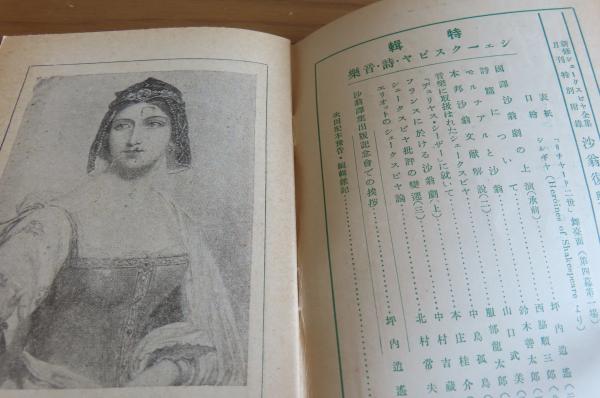 新修シェークスピヤ全集
月刊特別附録
沙翁復興
特輯
シェークスピヤ・詩・音樂
表紙 「リチャード二世」舞臺面(第四幕第一場)
口繪 シルヴィヤ(Heroines of Shakespeare より)
國譯沙翁劇の上演(承前)……坪内逍遙
詩篇について……西脇順三郎
モルナアルと沙翁……鈴木善太郎
本邦沙翁文獻解說(二)……山口武美
音樂に取扱はれたシェークスピヤ……服部龍太郎
『ヂュリヤス・シーザー』に就いて……中島孤島
フランスに於ける沙翁劇(上)……本庄桂介
シェークスピヤ批評の變遷(三)……中村吉藏
エリオットのシェークスピヤ論……北村常夫
沙翁譯業出版記念會での挨拶……坪内逍遙
次回配本豫告・編輯雜記